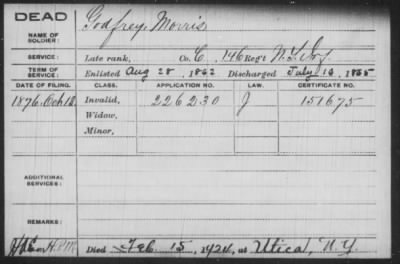 DEAD
NAME OF SOLDIER: Godfrey, Morris
SERVICE: Late rank, Co. C, 146 Reg't N.Y. Inf.
TERM OF SERVICE: Enlisted Aug 28, 1862 Discharged July 16, 1865
DATE OF FILING. CLASS. APPLICATION NO. LAW. CERTIFICATE NO.
1876, Oct 18 Invalid, 226230 J 151675
Widow,
Minor,
ADDITIONAL SERVICES:
REMARKS:
Died Feb 15, 1924, at Utica, N.Y.